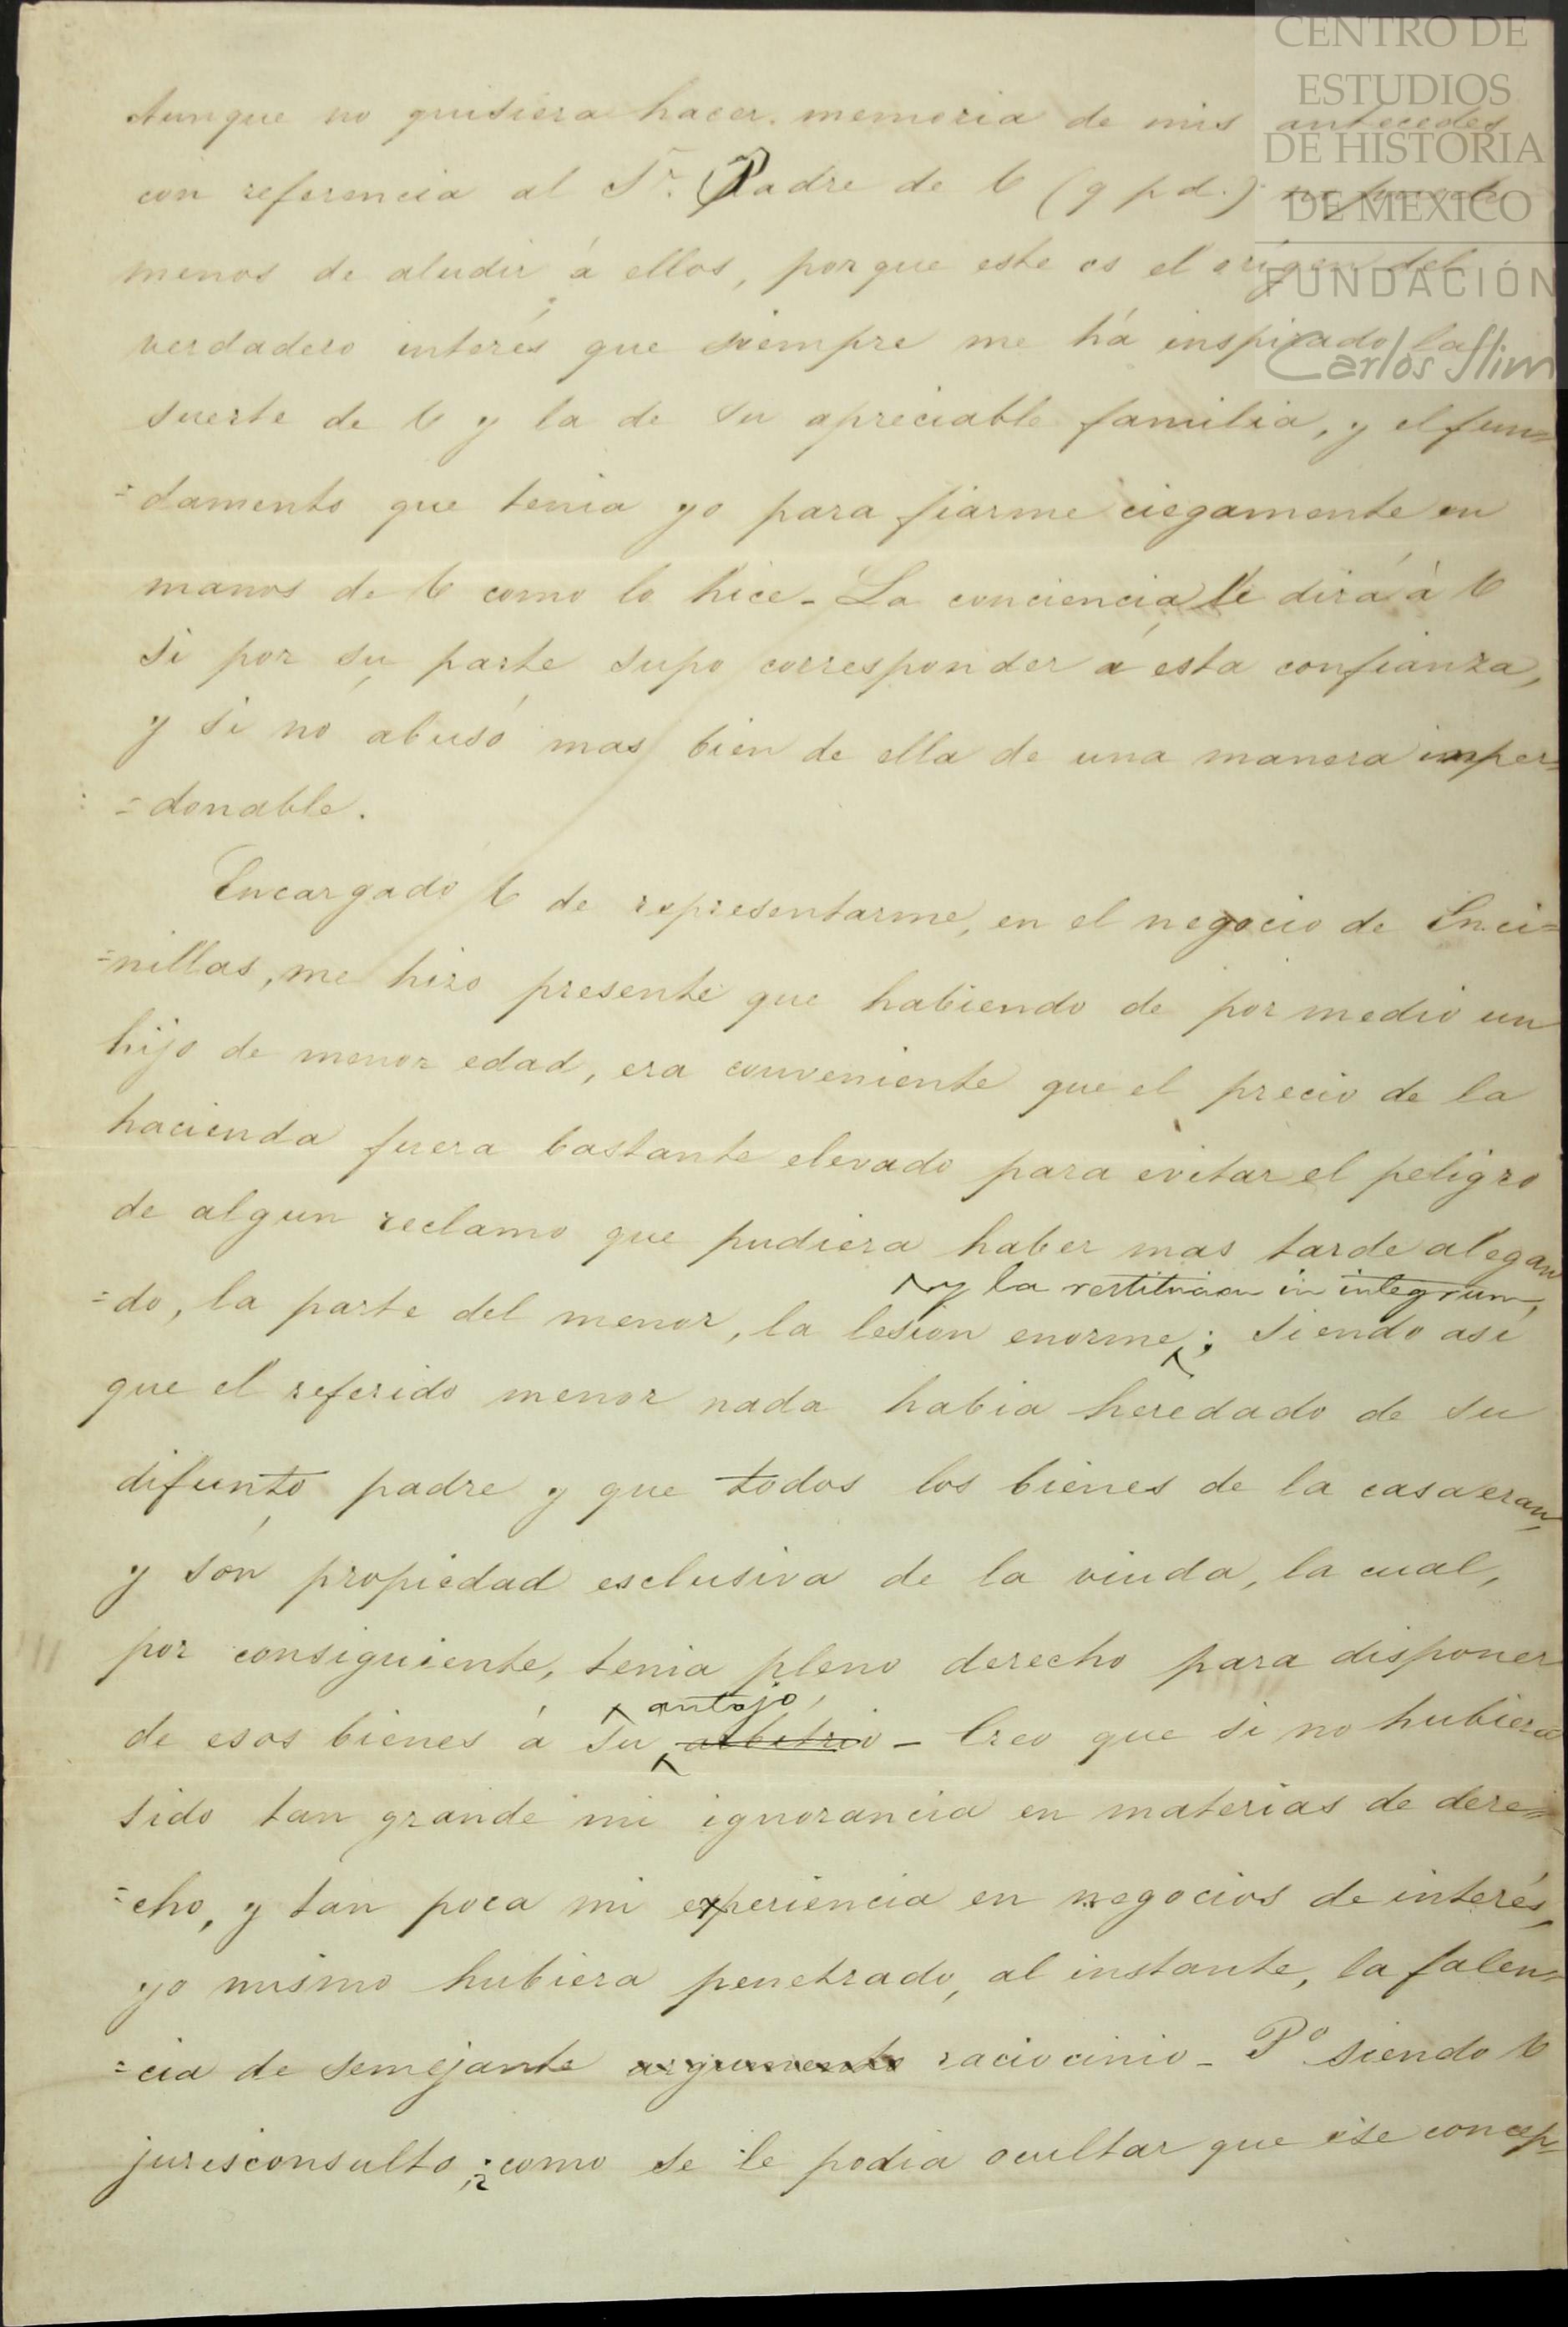 CENTRO DE
ESTUDIOS
DE HISTORIA
DE MEXICO
FUNDACIÓN
Carlos Slim
Aunque no quisiera hacer memoria de mis antecedes
con referencia al Sr. Padre de V (q p d.) no puedo
menos de aludir á ellos, porque este es el orígen del
verdadero interés que siempre me há inspirado la
suerte de V y la de su apreciable familia, y el fun=
=damento que tenia yo para fiarme ciegamente en
manos de V como lo hice - La conciencia le dirá á V
si por su parte supo corresponder á esta confianza,
y si nó abusó mas bien de ella de una manera imper=
=donable.
Encargado V de representarme, en el negocio de Enci=
=nillas, me hizo presente que habiendo de por medio un
hijo de menor edad, era conveniente que el precio de la
hacienda fuera bastante elevado para evitar el peligro
de algun reclamo que pudiera haber mas tarde alegan
y la restitucion in integrum,
=do, la parte del menor, la lesion enorme; siendo asi
que el referido menor nada habia heredado de su
difunto padre y que todos los bienes de la casa eran,
y són propiedad esclusiva de la viuda, la cual,
por consiguiente, tenia pleno derecho para disponer
antojo
de esos bienes á su arbitrio - Creo que si no hubiera
sido tan grande mi ignorancia en materias de dere=
=cho, y tan poca mi experiencia en negocios de interés,
yo mismo hubiera penetrado, al instante, la falen=
=cia de semejante argumento raciocinio - Pº siendo V
jurisconsulto ¿como se le podia ocultar que ese concep